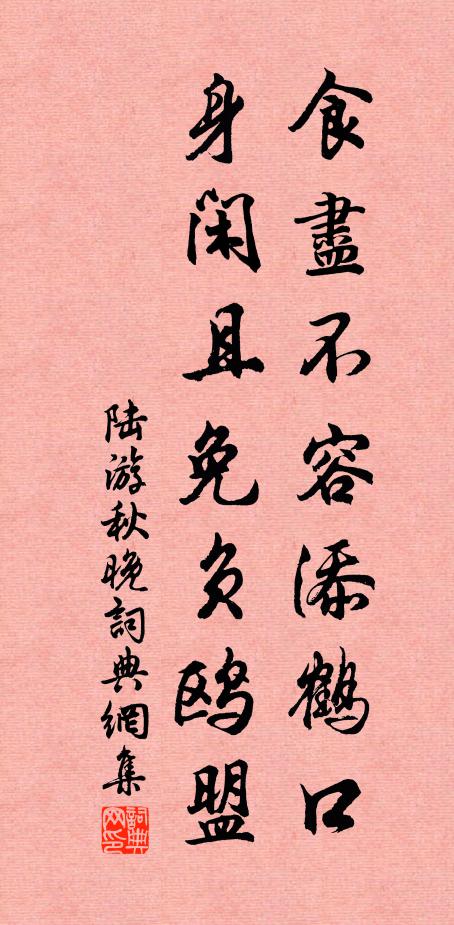 食盡不容添鶴口
身閑且免負鷗盟
陸游秋晚詞典網集
詞典网印